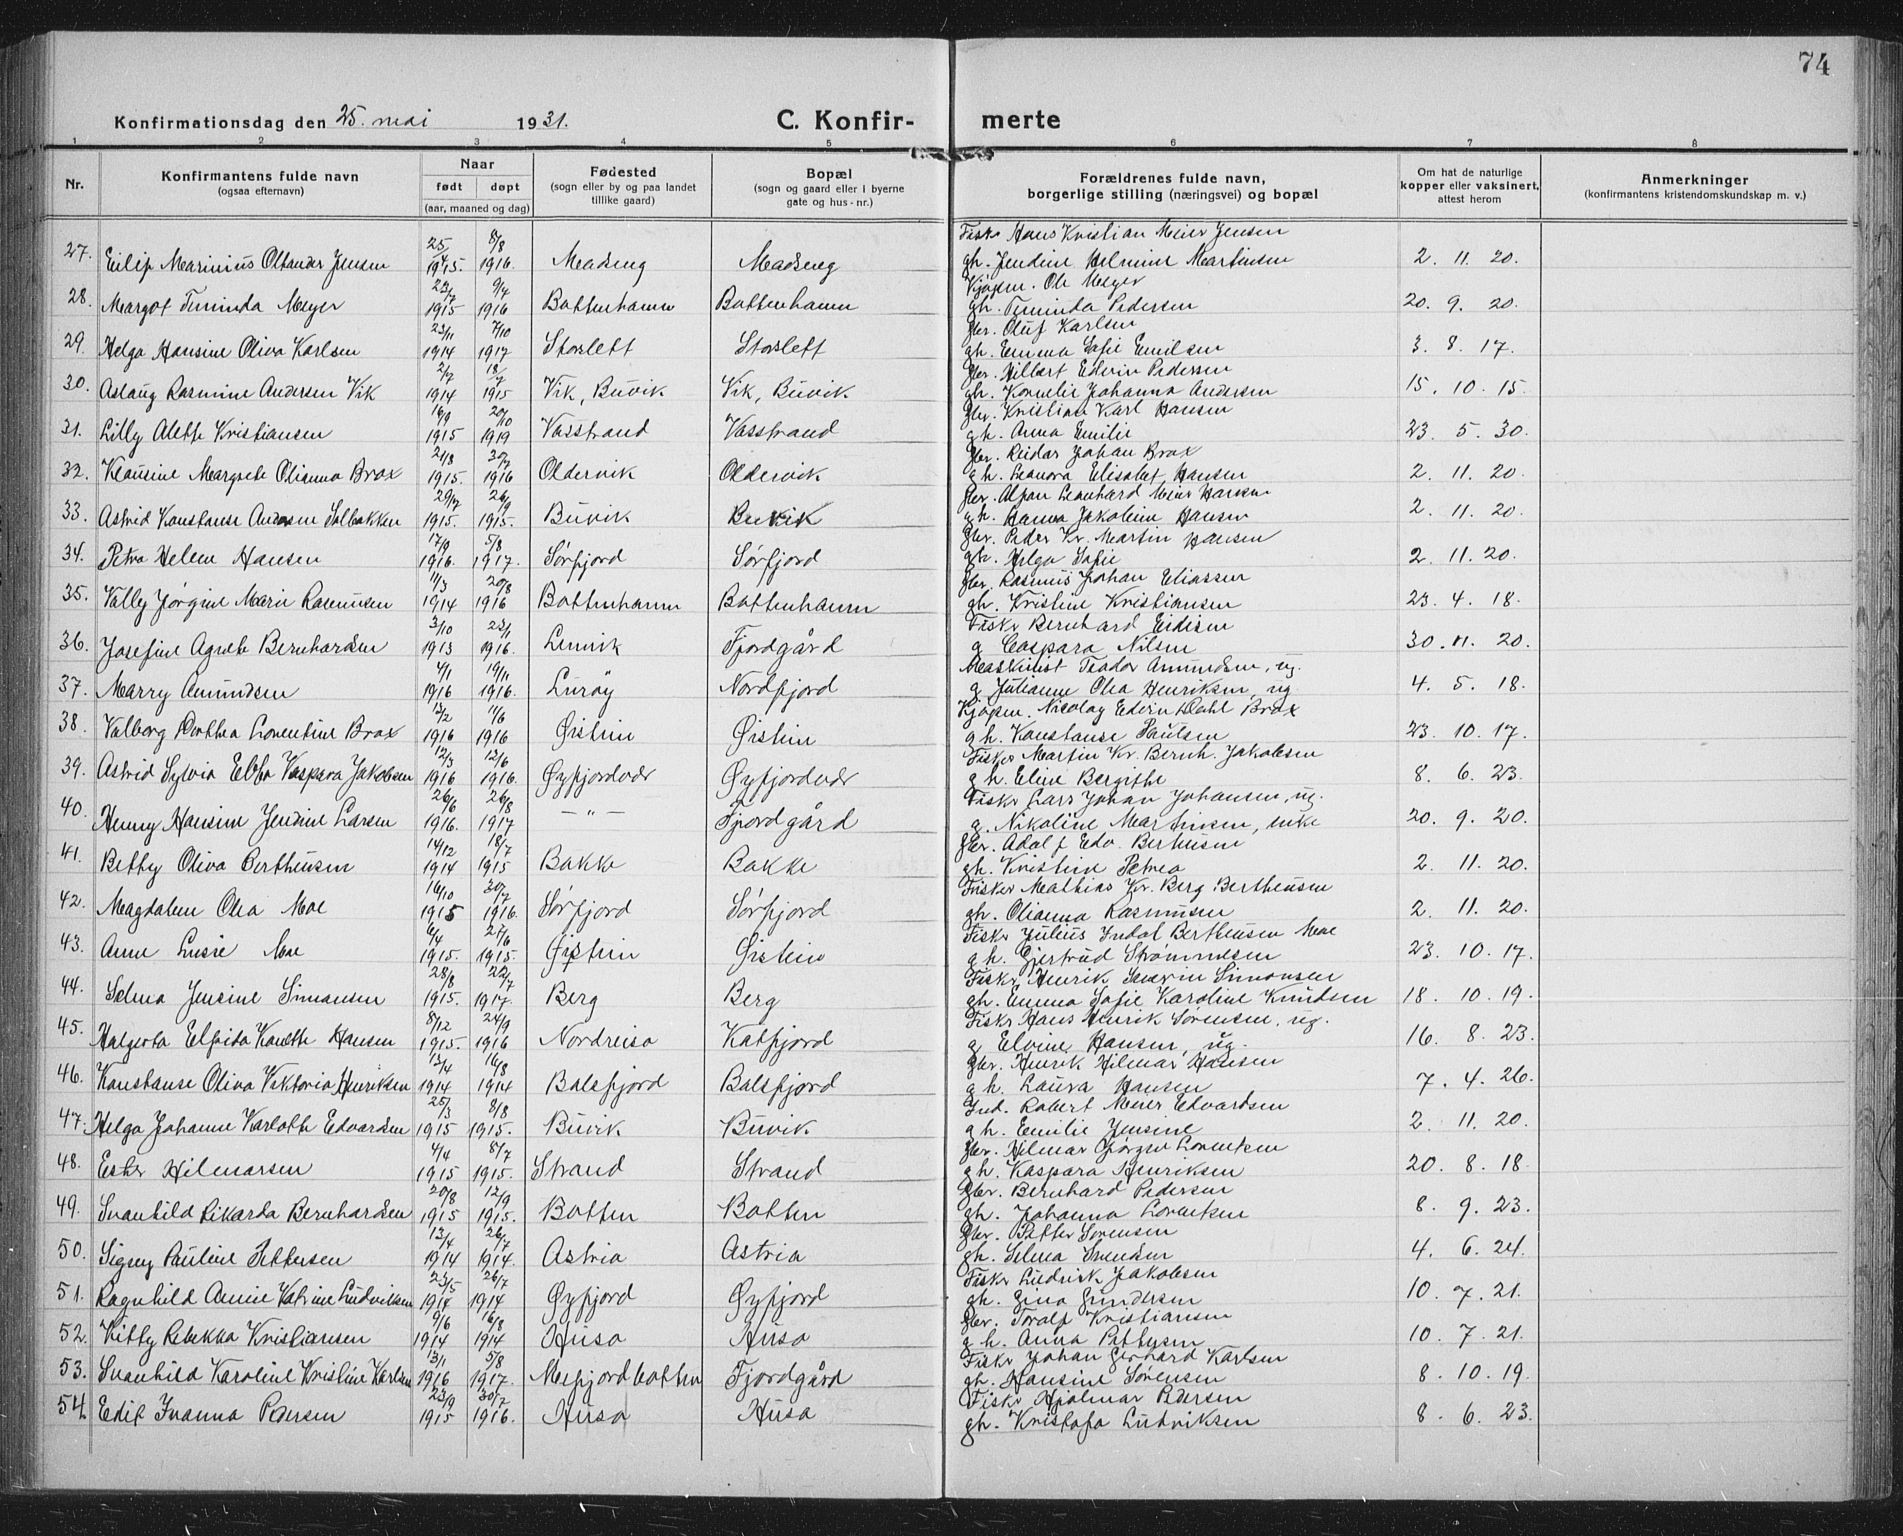 74
Konfirmationsdag den 25. mai 1931.
C. Konfir- merte
1 2 3 4 5 6 7 8
Nr.
Konfirmantens fulde navn
(ogsaa efternavn)
Naar
født døpt
(aar, maaned og dag)
Fødested
(sogn eller by og paa landet
tillike gaard)
Bopæl
(sogn og gaard eller i byerne
gate og hus-nr.)
Forældrenes fulde navn,
borgerlige stilling (næringsvei) og bopæl
Om hat de naturlige
kopper eller vaksinert,
attest herom
Anmerkninger
(konfirmantens kristendomskundskap m. v.)
25 8/8 Fisker Hans Kristian Meier Jensen
27. Marinius Jensen 1915. 1916. Madseng Madseng gh. Jendine Helmine Martinsen 2. 11. 20.
23/7 9/4 Kjøpm. Ole Meyer
28. Margot Teminda Meyer 1915 1916 Bottenhamn Bottenhamn gh. Teminda Pedersen 20. 9. 20.
23/11 7/10 Gbr. Oluf Karlsen
29. Helga Hansine Oliva Karlsen 1914 1917 Storslett Storslett gh. Emma Sofie Emilsen 3. 8. 17.
2/7 18/7 Gbr. Hilbert Edvin Pedersen
30. Aslaug Rasmine Andersen Vik 1914 1915 Vik, Buvik Vik, Buvik gh. Kornelie Johanna Andersen 15. 10. 15.
16/9 20/10 Gbr. Kristian Karl Hansen
31. Lilly Alette Kristiansen 1915 1919 Vasstrand Vasstrand gh. Anna Emilie 23. 5. 30.
21/8 30/7 Gbr. Reidar Johan Brox
32. Klausine Margrete Olianna Brox 1915. 1916 Oldervik Oldervik gh. Leonora Elisabet Hansen 2. 11. 20.
29/12 26/9 Gbr. Leonhard Meier Hansen
33. Astrid Konstanse Andersen Solbakken 1915. 1915. Buvik Buvik gh. Hanna Jakobine Hansen 2. 11. 20.
17/9 5/8 Gbr. Peder Kr. Martin Hansen
34. Petra Helene Hansen 1916. 1917. Sørfjord Sørfjord gh. Helga Sofie 2. 11. 20.
11/3 20/8 Gbr. Rasmus Johan Eliassen
35. Vally Jørgine Marie Rasmusen 1914 1916 Bottenhamn Bottenhamn gh. Kristine Kristiansen 23. 4. 18.
3/10 23/1 Fisker Bernhard Eidisen
36. Josefine Agnete Bernhardsen 1913 1916. Lenvik Fjordgård g Caspara Nilsen 30. 11. 20.
4/1 19/11 Maskinist Teodor Amundsen, ug.
37. Marry Amundsen 1916 1916. Lurøy Nordfjord g Julianne Olea Henriksen, ug 4. 5. 18.
13/2 11/6 Kjøpm. Nicolay Edvin Dahl Brox
38. Valborg Dorthea Lorentine Brox 1916 1916 Øistein Øistein gh. Konstanse Paulsen 23. 10. 17.
12/3 12/6 Fisker Martin Kr. Bernh. Jakobsen
39. Astrid Sylvia Ebba Kaspara Jakobsen 1916 1916. Øyfjordvær Øyfjordvær gh. Eline Bergithe 8. 6. 23.
26/6 26/8 Fisker Lars Johan Johansen, ug.
40. Henny Hansine Jendine Larsen 1916. 1917 — „ — Fjordgård g. Nikoline Martinsen, enke 20. 9. 20.
14/12 18/7 Gbr. Adolf Edv. Berteusen
41. Betty Oliva Bertheusen 1914 1915 Bakke Bakke gh. Kristine Petrea 2. 11. 20.
16/10 30/7 Fisker Mathias Kr. Berg Bertheusen
42. Magdalene Olea Moe 1915 1916. Sørfjord Sørfjord gh. Olianna Rasmusen 2. 11. 20.
6/4 27/6 Fisker Julius Indal Bertheusen Moe
43. Anne Lusie Moe 1915. 1915. Øistein Øistein gh. Gjertrud Strømmesen 23. 10. 17.
28/8 22/7 Fisker Henrik Severin Simonsen
44. Selma Jensine Simonsen 1915. 1917. Berg Berg gh. Emma Sofie Karoline Knudsen 18. 10. 19.
8/12 24/9 Fisker Hans Henrik Sørensen, ug.
45. Halgerta Elfrida Hansen 1915. 1916 Nordreisa Katfjord g Elvine Hansen, ug. 16. 8. 23.
13/4 16/8 Gbr. Henrik Hilmar Hansen
46. Konstanse Oliva Viktoria Henriksen 1914 1914 Balsfjord Balsfjord gh. Laura Hansen 7. 4. 26.
25/3 8/8 Ind. Robert Meier Edvardsen
47. Helga Johanne Karlotte Edvardsen 1915 1915. Buvik Buvik gh. Emilie Jensine 2. 11. 20.
4/4 8/7 Gbr. Hilmar Jørgen Lorentsen
48. Ester Hilmarsen 1915 1915. Strand Strand gh. Kaspara Henriksen 20. 8. 18.
20/8 12/9 Gbr. Bernhard Pedersen
49. Svanhild Rikarda Bernhardsen 1915 1915. Botten Botten gh. Johanna Lorentsen 8. 9. 23.
13/4 26/7 Gbr. Petter Sørensen
50. Signy Pauline Pettersen 1914 1914. Astria Astria gh. Selma Svendsen 4. 6. 24.
23/5 26/7 Fisker Ludvik Jakobsen
51. Ragnhild Annie Katrine Ludviksen 1914 1914 Øyfjord Øyfjord gh. Gina Gundersen 10. 7. 21.
9/6 16/8 Gbr. Toralf Kristiansen
52. Kitty Rebekka Kristiansen 1914 1914 Husø Husø gh. Anna Pettersen 10. 7. 21.
13/1 5/8 Fisker Johan Gerhard Karlsen
53. Svanhild Karoline Kristine Karlsen 1916 1917. Mefjordbotten Fjordgård gh. Hansine Sørensen 8. 10. 19.
23/9 30/7 Fisker Hjalmar Pedersen
54 Edit Ivanna Pedersen 1915 1916. Husø Husø gh. Kristofa Ludviksen 8. 6. 23.